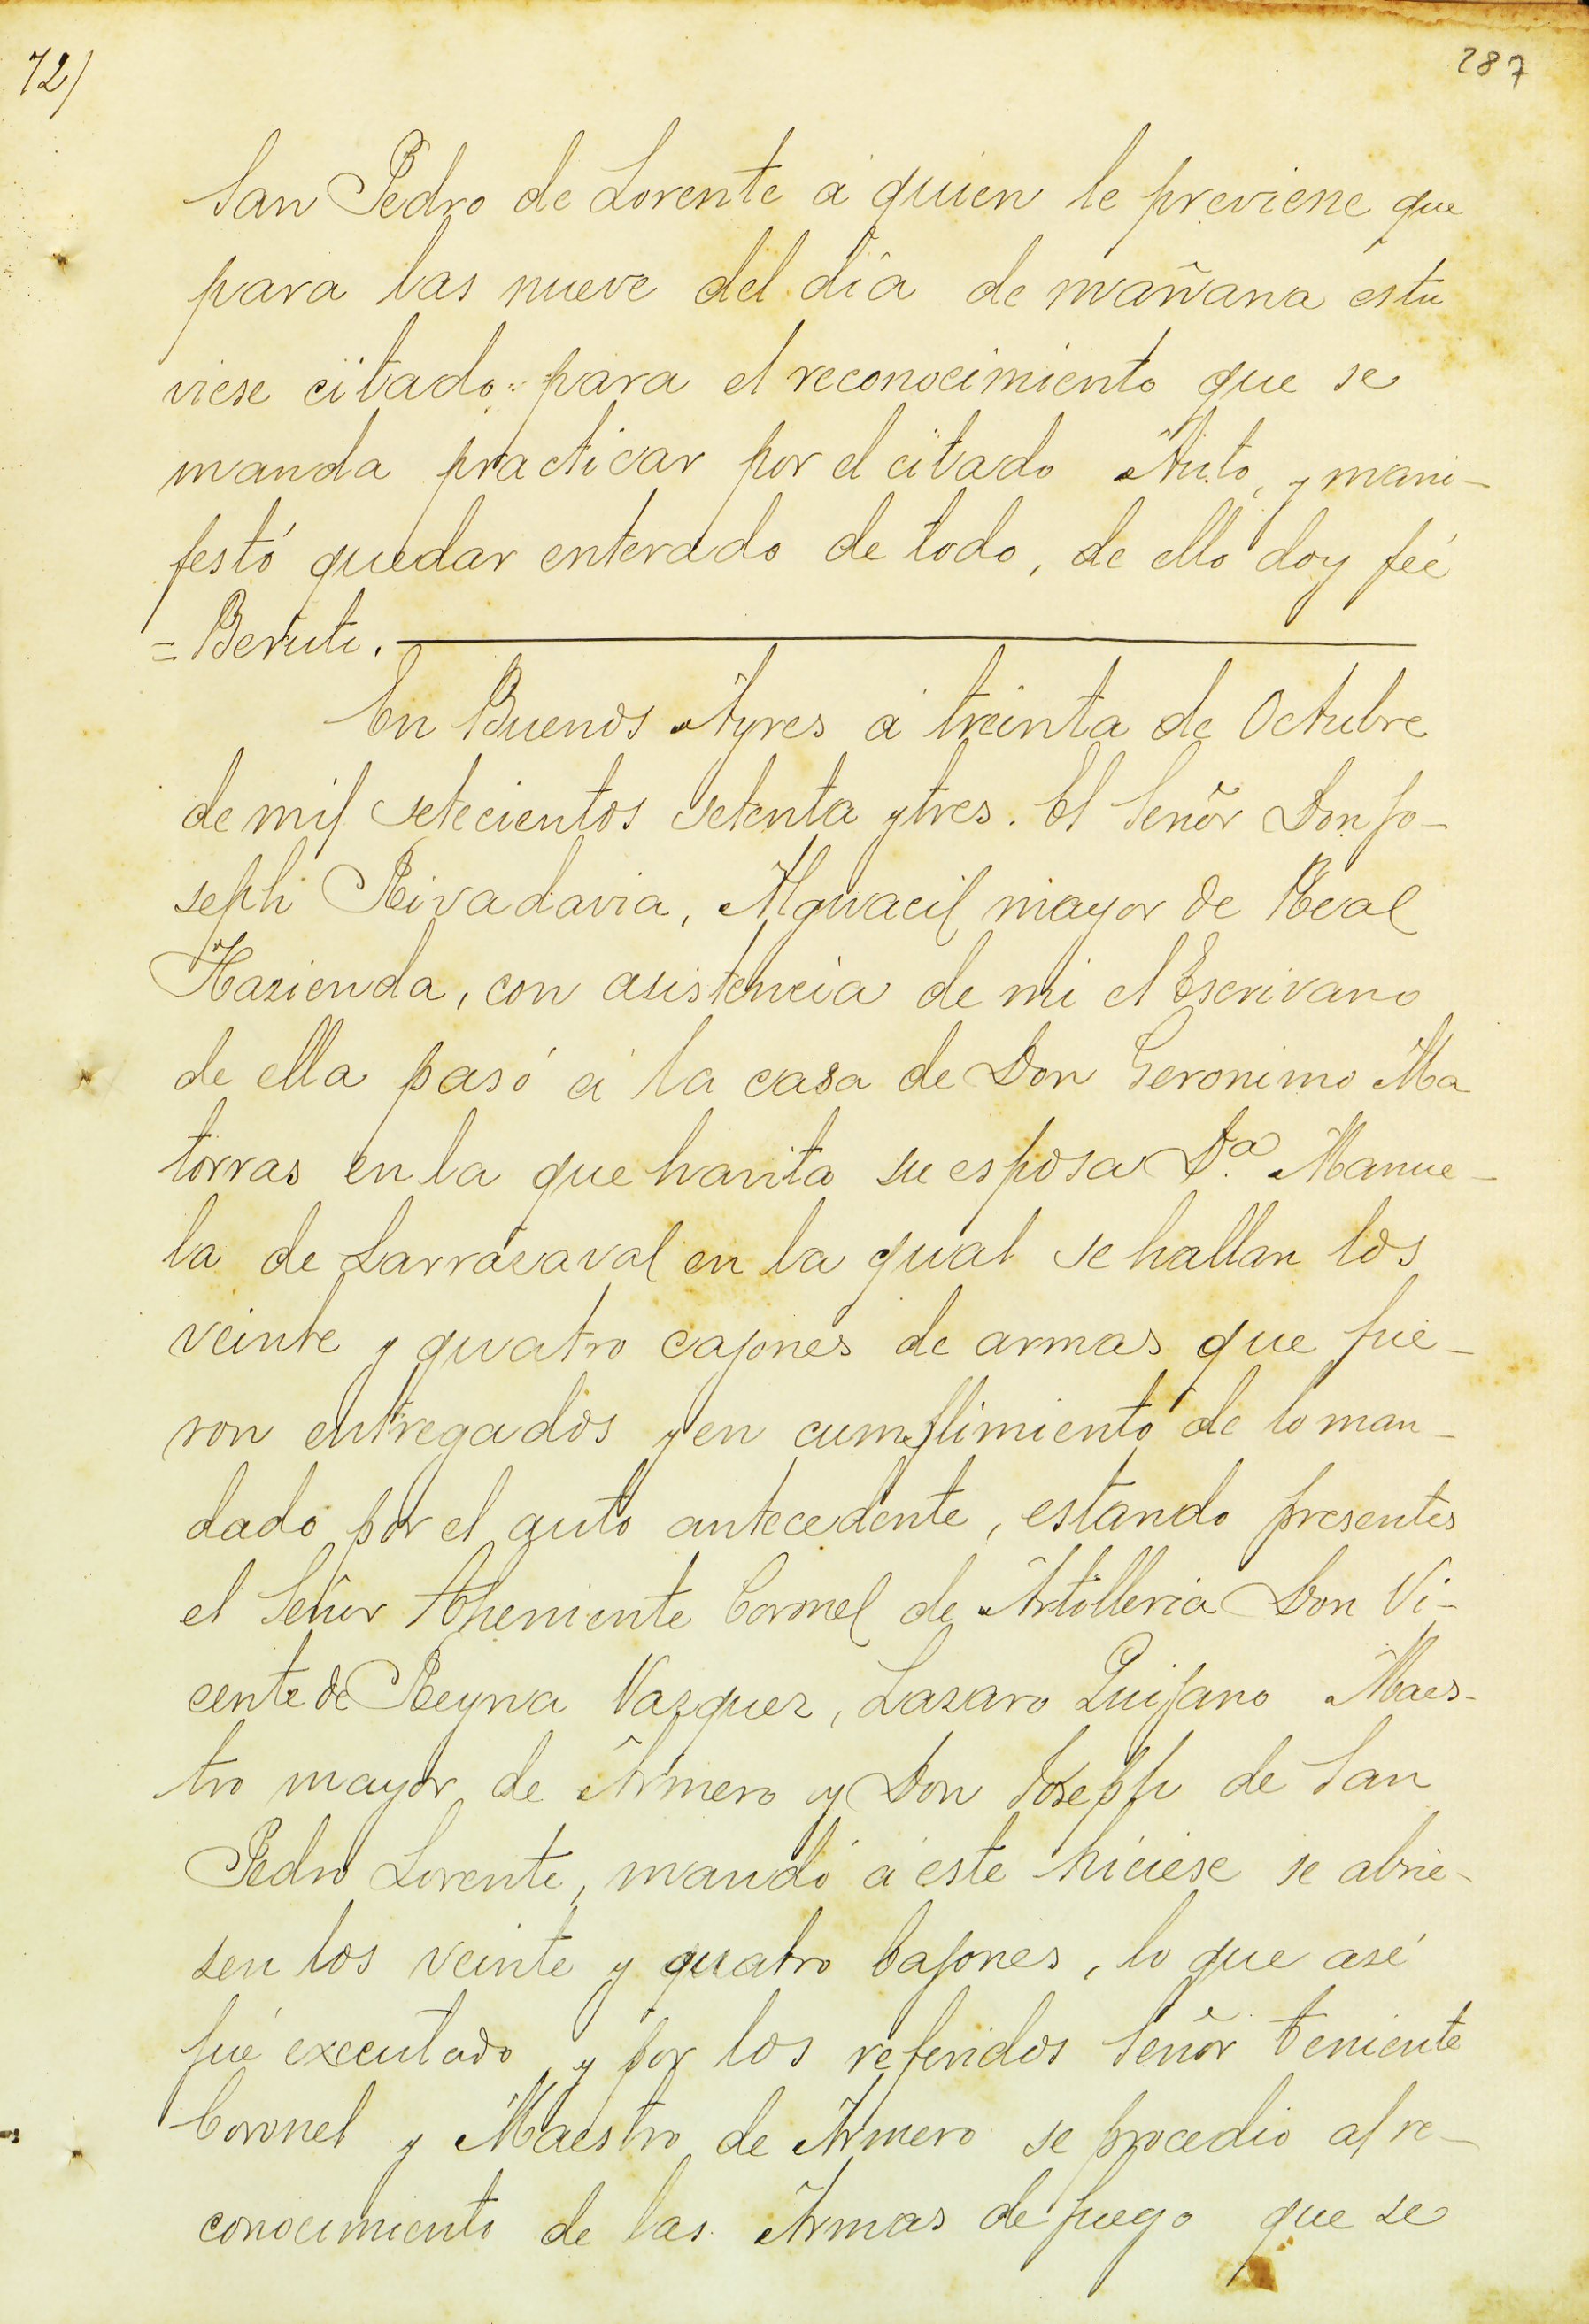 72)
287
San Pedro de Lorente á quien le previene que
para las nueve del dia de mañana estu
viese citado para el reconocimiento que se
manda practicar por el citado Auto, y mani-
festó quedar enterado de todo, de ello doy feé
=Beruti.
En Buenos Ayres á treinta de Octubre
de mil setecientos setenta y tres. El Señor Don Jo-
seph Rivadavia, Alguacil mayor de Real
Hazienda, con asistencia de mi el Escrivano
de ella pasó á la casa de Don Geronimo Ma
torras en la que havita su esposa D.ª Manue-
la de Larrazaval en la qual se hallan los
veinte y quatro cajones de armas que fue-
ron entregados y en cumplimiento de lo man-
dado por el auto antecedente, estando presentes
el Señor Theniente Coronel de Artilleria Don Vi-
cente de Reyna Vazquez, Lazaro Quijano Maes-
tro mayor de Armero y Don Joseph de San
Pedro Lorente, mandó á este hiciese se abrie-
sen los veinte y quatro Cajones, lo que asé
fué executado y por los referidos Señor Teniente
Coronel y Maestro de Armero se procedio al re-
conocimiento de las Armas de fuego que se